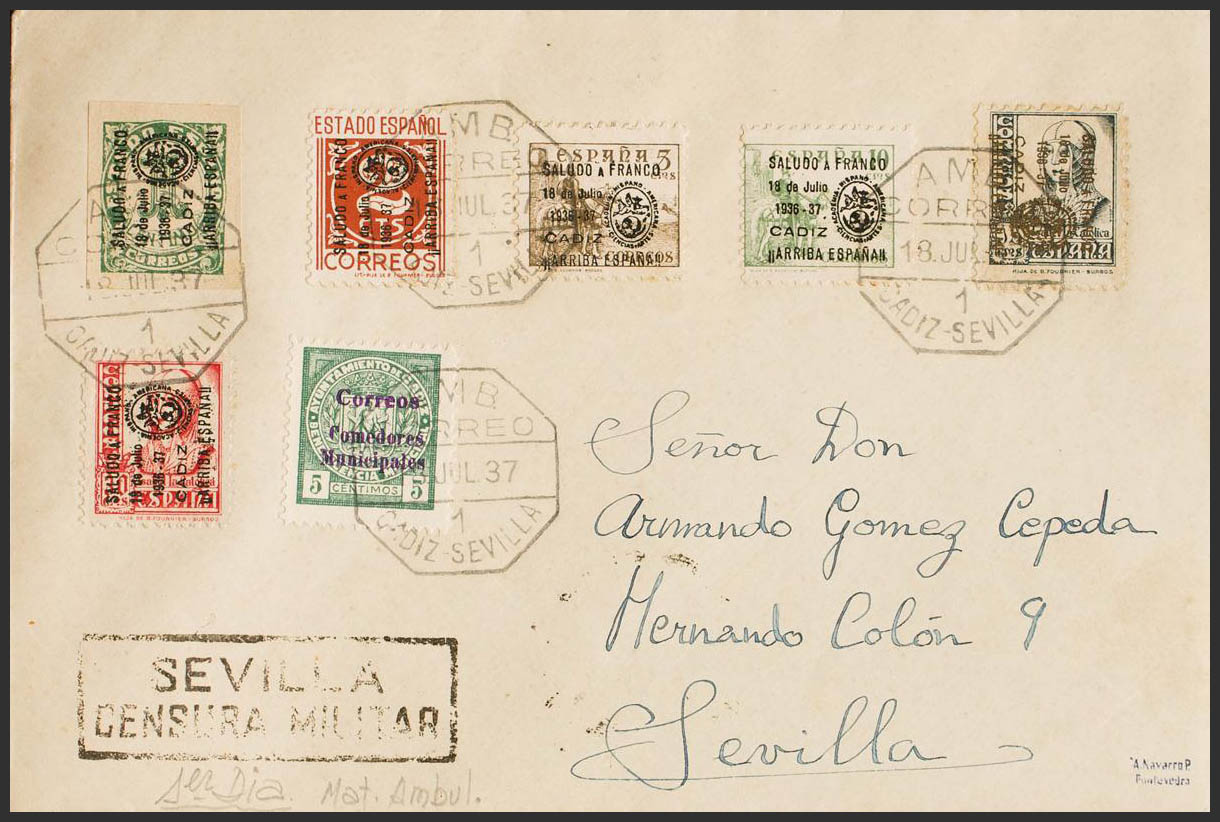 SALUDO A FRANCO
18 de Julio
1936-37
CADIZ
¡¡ARRIBA ESPAÑA!!
CORREOS
ESTADO ESPAÑOL
SALUDO A FRANCO
18 de Julio
1936-37
CADIZ
¡¡ARRIBA ESPAÑA!!
CTS
CORREOS
ESPAÑA 5
SALUDO A FRANCO
18 de Julio
1936-37
CADIZ
¡¡ARRIBA ESPAÑA!!
ESPAÑA 10
SALUDO A FRANCO
18 de Julio
1936-37
CADIZ
¡¡ARRIBA ESPAÑA!!
ACADEMIA HISPANO AMERICANA
CIENCIAS ARTES
ESPAÑA
HIJA DE B. FOURNIER - BURGOS
AMB.
CORREO
18 JUL.37
1
CADIZ-SEVILLA
AMB.
CORREO
JUL.37
1
CADIZ-SEVILLA
AMB
CORREO
18.JUL
1
CADIZ-SEVILLA
SALUDO A FRANCO
18 de Julio
1936-37
CADIZ
¡¡ARRIBA ESPAÑA!!
ESPAÑA
HIJA DE B. FOURNIER - BURGOS
AYUNTAMIENTO DE CADIZ
Correos
Comedores
Municipales
5 CENTIMOS 5
AMB.
CORREO
JUL.37
1
CADIZ-SEVILLA
Señor Don
Armando Gomez Cepeda
Hernando Colón 9
Sevilla
SEVILLA
CENSURA MILITAR
1er Dia. Mat. Ambul.
A.Navarro P.
Pontevedra